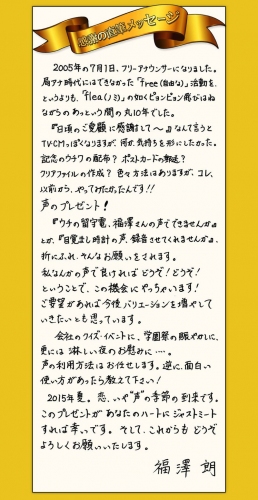 感謝の直筆メッセージ
2005年の7月1日、フリーアナウンサーになりました。
局アナ時代にはできなかった「free（自由な）」活動を、
というよりも、「flea（ノミ）」の如くピョンピョン飛びはね
ながらの あっという間の 丸10年でした。
『日頃のご愛顧に感謝して〜』なんて言うと
TV-CMっぽくなりますが、何か、気持ちを形にしたかった。
記念のウチワの配布？ ポストカードの郵送？
クリアファイルの作成？ 色々方法はありますが、コレ、
以前から、やってみたかったんです!!
声のプレゼント!
『ウチの留守電、福澤さんの声でできませんか』
とか、『目覚まし時計の声、録音させてくれませんか』、
折にふれ、そんなお願いをされます。
私なんかの声で良ければ どうぞ! どうぞ!
ということで、この機会にやっちゃいます!
ご要望があれば今後、バリエーションを増やして
いきたいとも思っています。
会社のクイズ・イベントに、学園祭の賑やかしに、
更には 淋しい夜のお慰みに‥‥。
声の利用方法はお任せします。逆に、面白い
使い方があったら教えて下さい!
2015年夏。恋、いや"声"の季節の到来です。
このプレゼントが あなたのハートに ジャストミート
すれば幸いです。 そして、これからも どうぞ
よろしくお願いいたします。
福澤 朗